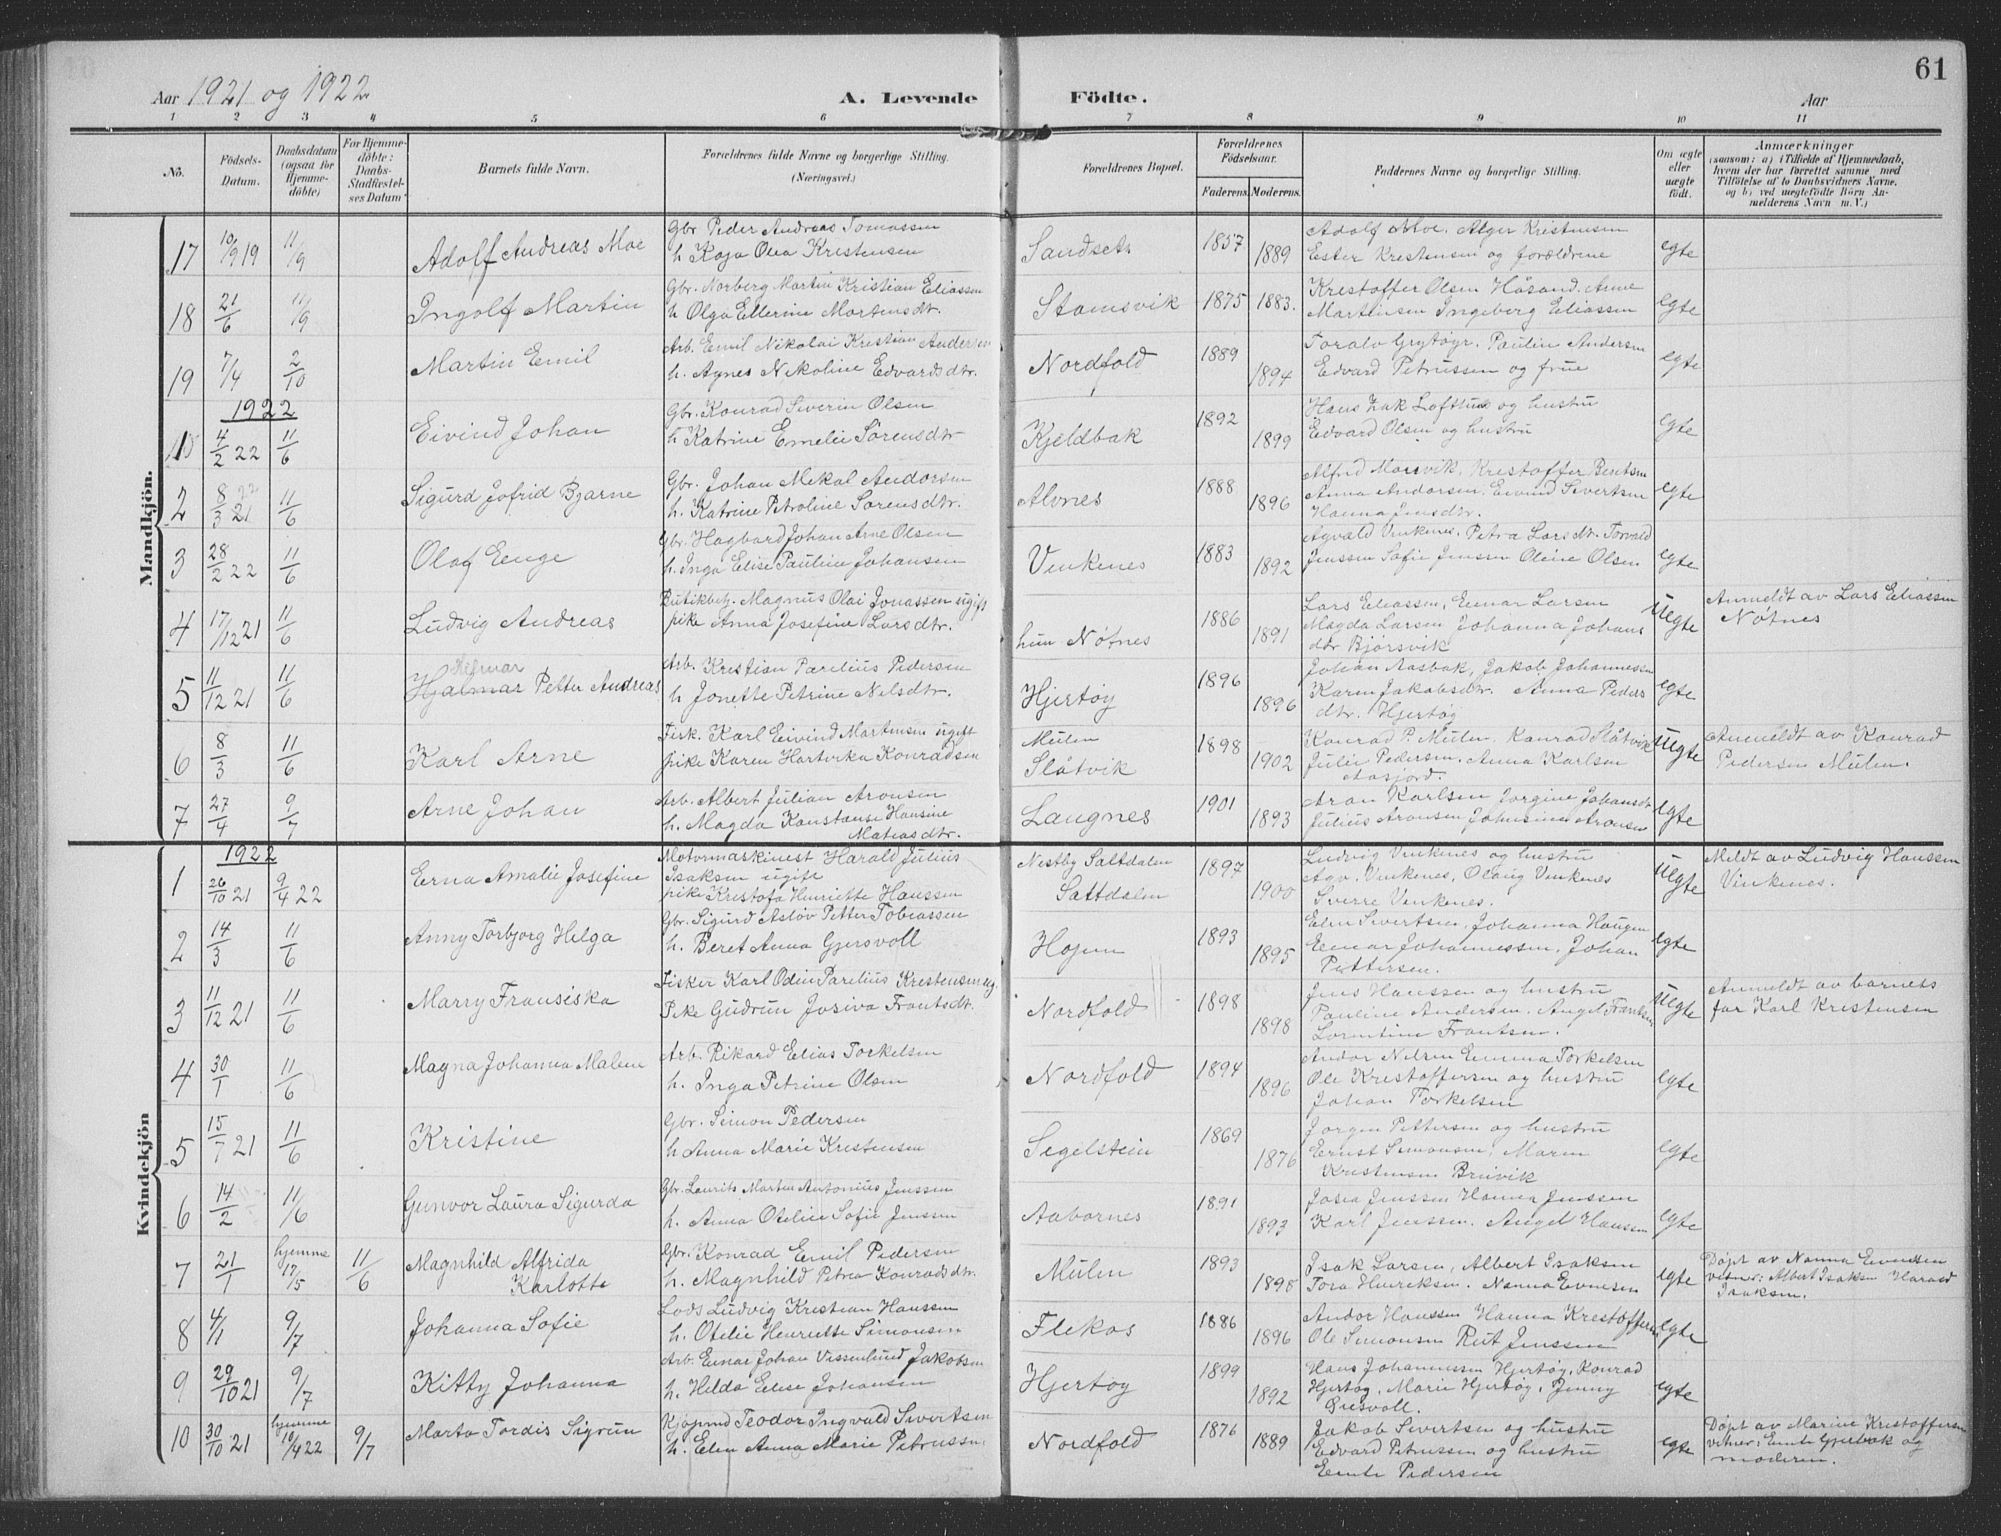 61
Aar 1921 og 1922 A. Levende Födte. Aar
1 2 3 4 5 6 7 8 9 10 11
No.
Födsels-Datum.
Daabsdatum (ogsaa for Hjemmedöbte)
For Hjemmedöbte: Daabs-Stadfæstelses Datum
Barnets fulde Navn.
Forældrenes fulde Navne og borgerlige Stilling. (Næringsvei.)
Forældrenes Bopæl.
Forældrenes Födselsaar. Faderens. Moderens.
Faddernes Navne og borgerlige Stilling.
Om ægte eller uægte födt.
Anmærkninger (saasom: a) i Tilfælde af Hjemmedaab, hvem der har forrettet samme med Tilföielse af to Daabsvidners Navne, og b) ved uegtefödte Börn Anmelderens Navn m. V.)
Mandkjön.
17 10/9 19 11/9 Adolf Andreas Moe
Gbr. Peder Andreas Tomassen
h. Kaja Olea Kristensen
Sandset 1857 1889
Adolf Moe. Alger Kristensen
Ester Krestensen og forældrene
egte
18 21/6 11/9 Ingolf Martin
Gbr. Norberg Martin Kristian Eliassen
h Olga Ellerine Mortensdtr.
Stamsvik 1875 1883.
Krestoffer Olsen Håsand. Anne
Martensen Ingeberg Eliassen
egte
19 7/4 2/10 Martin Emil
Arb. Emil Nikolai Kristian Andersen
h. Agnes Nikoline Edvardsdtr.
Nordfold 1889 1894
Toralv Grytøyr. Paulin Andersen
Edvard Petrussen og frue
egte
1922
1 4/2 22 11/6 Eivind Johan
Gbr. Konrad Severin Olsen
h Katrine Emelie Sörensdtr
Kjeldbak 1892 1899
Hans Zak Lofthus og hustru
Edvard Olsen og hustru
egte
2 8/3 21 11/6 Sigurd Jofrid Bjarne
Gbr. Johan Mekal Andorsen
h. Katrine Petroline Sorensdtr.
Alvnes 1888 1896
Alfred Morsvik. Krestoffer Bentsen
Anna Andorsen. Eivind Sivertsen
Hanna Jensdtr.
egte
3 28/2 22 11/6 Olaf Eenge
Gbr. Hagbard Johan Arne Olsen
h. Inga Elise Pauline Johansen
Vinkenes 1883 1892
Agvald Vinkenes. Petra Larsdtr. Torvald
Jenssen Safie Jensen Oleine Olsen
egte
4 17/12 21 11/6 Ludvig Andreas
Butikbetj. Magnus Olai Jonassen ugift
pike Anna Josefine Larsdtr.
hun Nøtnes 1886 1891
Lars Eliassen, Einar Larsen
Magda Larsen Johanna Johans
dtr Bjørsvik
Uegte
Anmeldt av Lars Eliassen
Nøtnes
5 11/12 21 11/6 Hilmar
Hjalmar Petter Andreas
Arb. Kristian Parelius Pedersen
h Jonette Petrine Nelsdtr.
Hjertøy 1896 1896
Johan Aasbak, Jakob Johannessen
Karen Jakobsdtr. Anna Peders
dtr. Hjertøy
egte
6 8/3 11/6 Karl Arne
Fisk. Karl Eivind Martensen ugift
pike Karen Hartvika Konradsen
Mulen
Slåtvik 1898 1902
Konrad P. Mulen. Konrad Slåtvik
Julie Pedersen. Anna Karlsen
Aasjord.
Uegte
Anmeldt av Konrad
Pedersen Mulen.
7 27/4 9/7 Arne Johan
Arb. Albert Julian Aronsen
h. Magda Konstanse Hansine
Matiasdtr.
Langnes 1901 1893
Aron Karlsen Jorgine Johansdtr
Julius Aronsen Johnsine Aronsen
egte
Kvindekjön
1922
1 26/10 21 9/4 22 Erna Amalie Josefine
Motormaskinest Harald Julius
Isaksen ugift
pike Krestofa Henriette Hanssen
Nestby Saltdalen
Saltdalen 1897 1900
Ludvig Vinkenes og hustru
Agv. Vinkenes, Olaug Vinkenes
Sverre Vinkenes.
Uegte
Meldt av Ludvig Hanssen
Vinkenes.
2 14/3 11/6 Anny Torbjorg Helga
Gbr. Sigurd Asløv Petter Tobiassen
h. Beret Anna Gjersvoll
Hojem 1893 1895
Elen Sivertsen. Johanna Haugen
Eenar Johannessen. Johan
Pettersen.
egte
3 11/12 21 11/6 Marry Fransiska
Fisker Karl Odin Parelius Krestensen ug.
Pike Gudrun Josiva Frantsdtr.
Nordfold 1898 1898
Jens Hanssen og hustru
Pauline Andersen. Angel Frantsen
Lorentine Frantsen.
Uegte
Anmeldt av barnets
far Karl Kristensen
4 30/1 11/6 Magna Johanna Malene
Arb. Rikard Elias Torkelsen
h. Inga Petrine Olsen
Nordfold 1894 1896
Andor Nelsen Emma Torkelsen
Ole Krestoffersen og hustru
Johan Torkelsen
egte
5 15/7 21 11/6 Kristine
Gbr. Simon Pedersen
h Anna Marie Krestensen
Segelstein 1869 1876
Jorgen Pettersen og hustru
Ernst Simonsen, Maren
Kristensen Brinvik
egte
6 14/2 11/6 Gunvor Laura Sigurda
Gbr. Laurits Marten Antonius Jenssen
h. Anna Oteline Sofie Jenssen
Aabornes 1891 1893
Josea Jenssen Hanna Jenssen
Karl Jenssen. Angel Hanssen
egte
7 21/1 hjemme 17/5 11/6 Magnhild Alfrida
Karlotte
Gbr. Konrad Emil Pedersen
h. Magnhild Petrea Konradsdtr.
Mulen 1893 1898
Isak Larsen, Albert Isaksen
Tora Henreksen. Nanna Evensen
egte
Døpt av Nanna Evensen
vitner: Albert Isaksen Harald
Isaksen.
8 4/1 9/7 Johanna Sofie
Lods Ludvig Kristian Hanssen
h. Otelie Henriette Simonsen
Flekos 1886 1896
Andor Hanssen Hanna Krestoffersen
Ole Simonsen Rut Jenssen
egte
9 29/10 21 9/7 Kitty Johanna
Arb. Einar Johan Vissenlund Jakobsen
h. Hilda Elise Johansen
Hjertøy 1899 1892
Hans Johannessen Hjertøy, Konrad
Hjertøy. Marie Hjertøy, Jenny
Øiesvoll.
egte
10 30/10 21 hjemme 10/4 22 9/7 Marta Tordis Sigrun
Kjøpmd Teodor Ingvald Sivertsen
h. Elen Anna Marie Petrussn.
Nordfold 1876 1889
Jakob Sivertsen og hustru
Edvard Petrussen og hustru
Eente Pedersen
egte
Døpt av Marine Krestoffersen
vitner: Eente Gjerbak og
moderen.